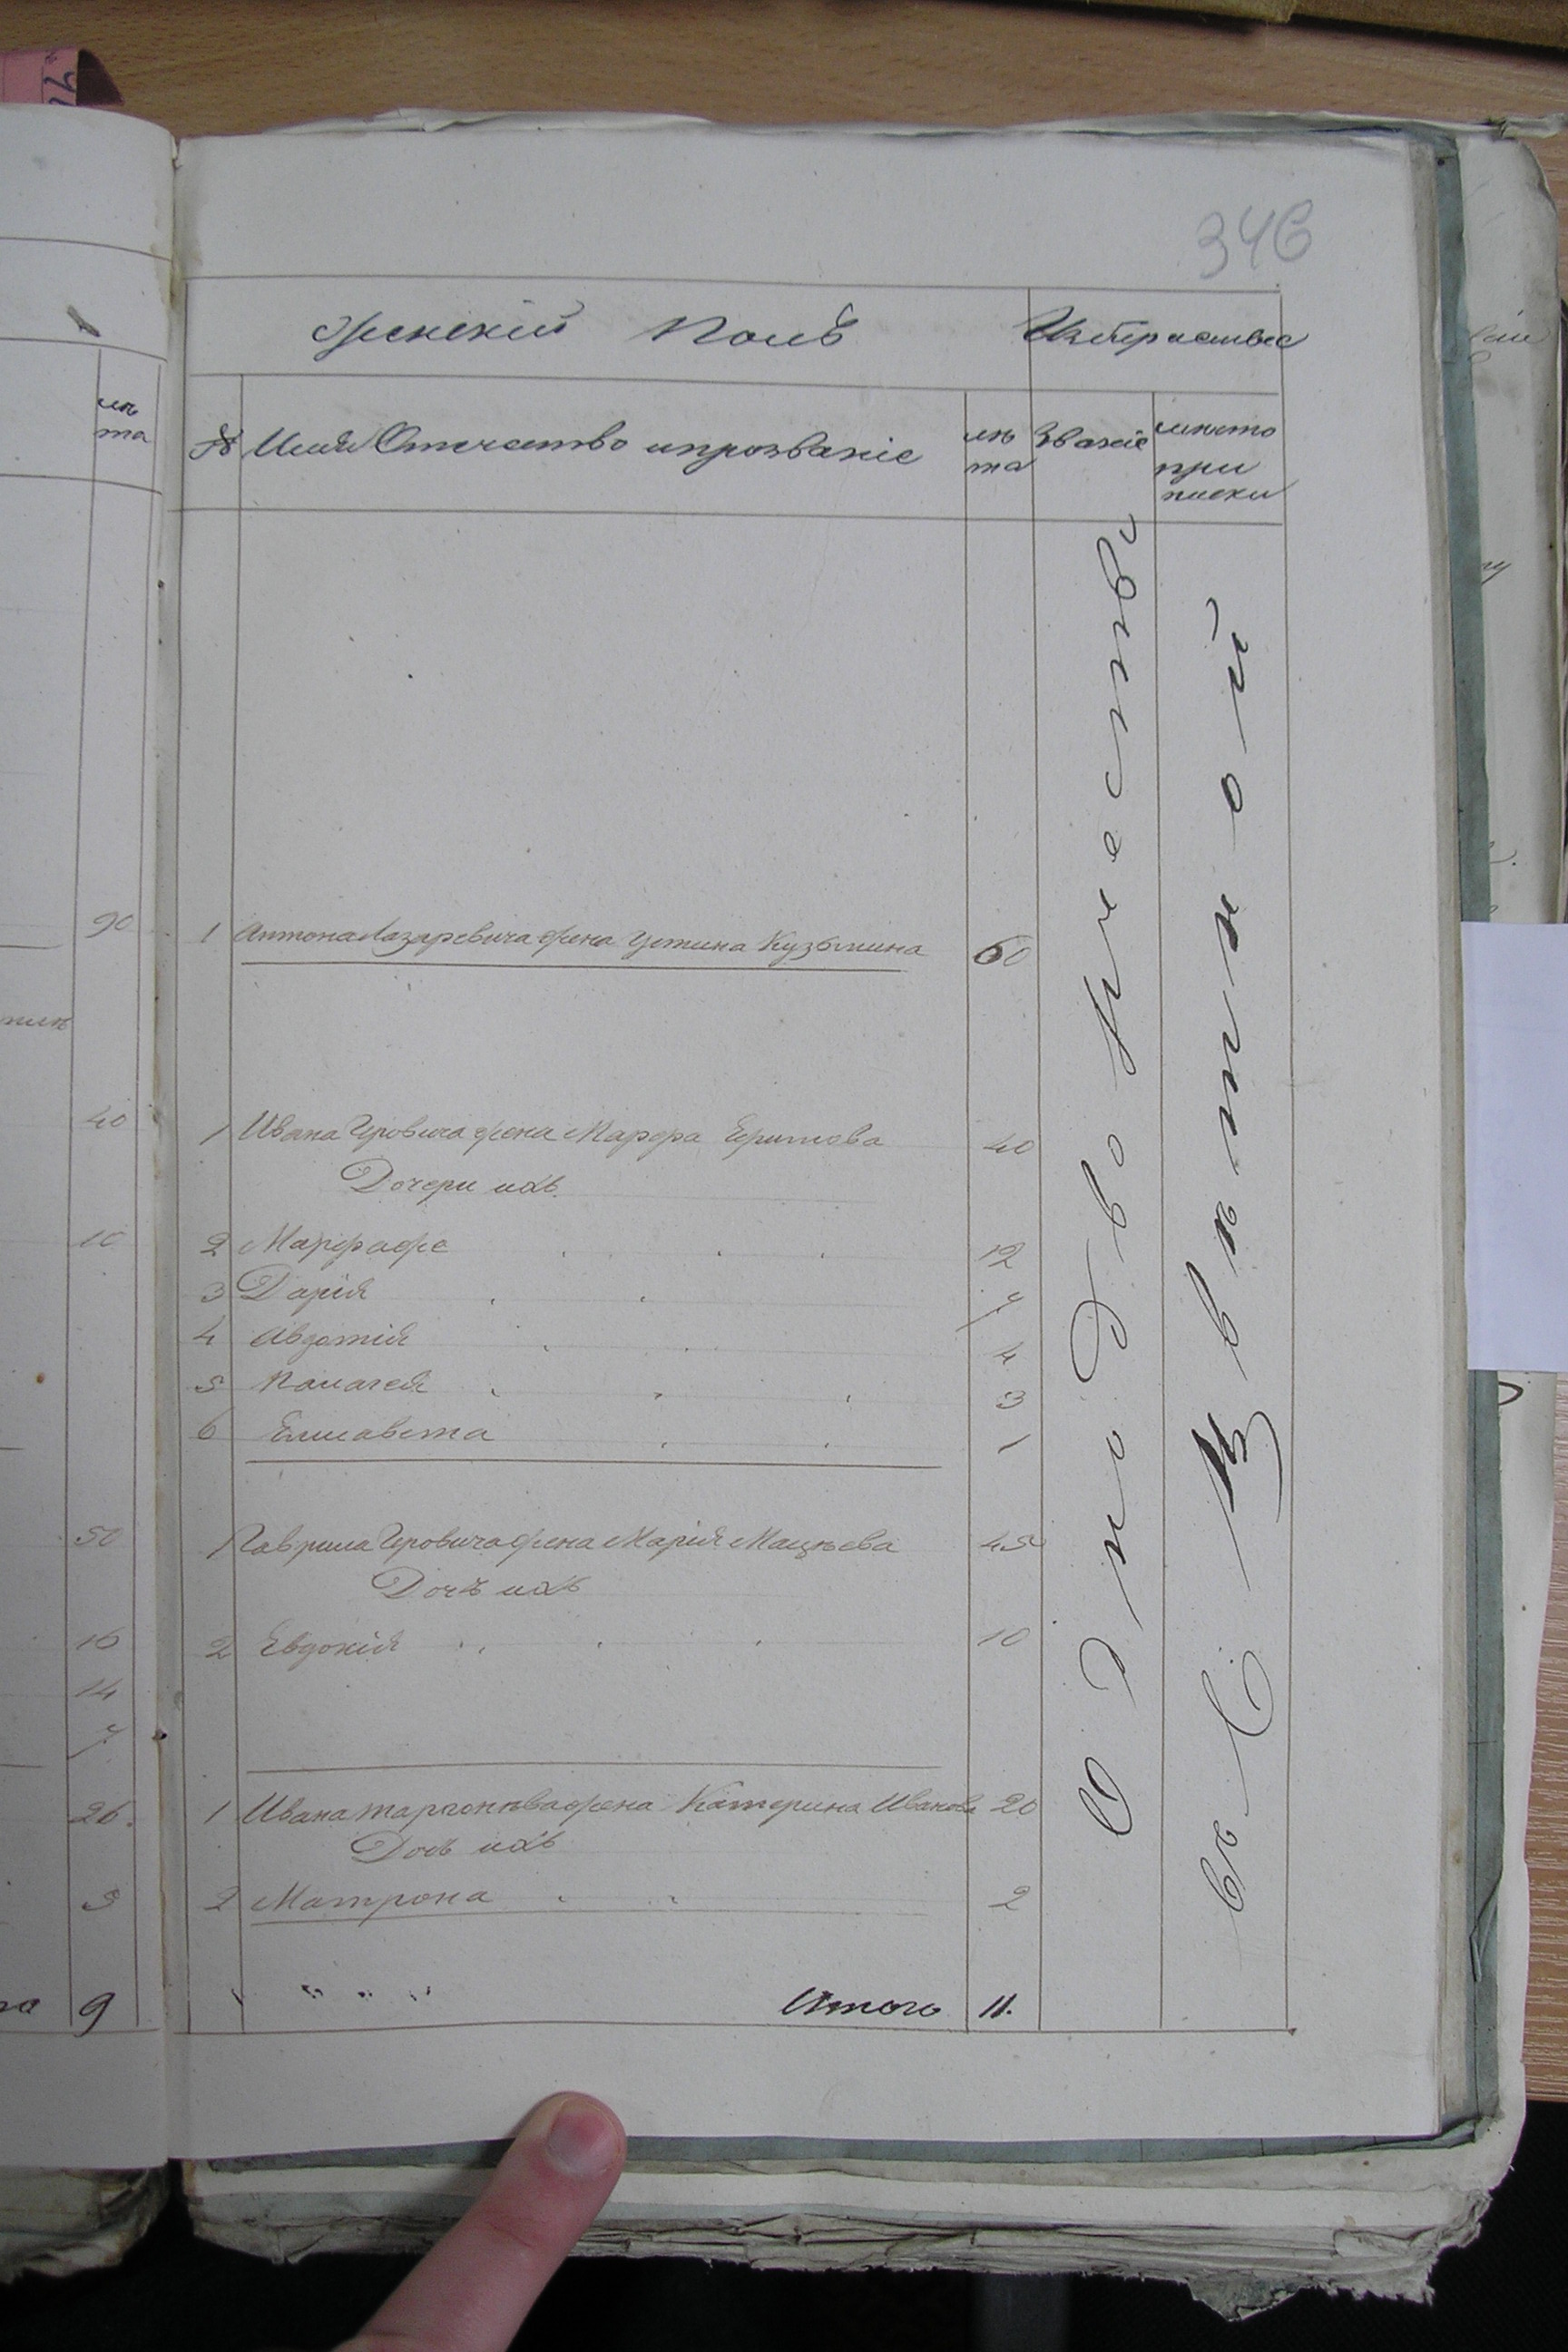 346
Женскій Полъ
№ Имя Отчество ипрозваніе
лѣ
та
Званіе
мѣсто
при
писки
лѣ
та
90
1 Антона Лазаревича жена Устина Кузьмина 60
40
1 Ивана жена Марфа 40
Дочери ихъ
10
2 Марфа же 12
3 Дарія 7
4 Авдотія 4
5 Палагея 3
6 Елисавета 1
50
1 Гаврила жена Марія 45
Дочь ихъ
16
2 Евдокія 10
14
7
26.
1 Ивана жена Катерина Иванова 20
Дочь ихъ
5
2 Матрона 2
9
Итого 11.
въ С Цвѣтной